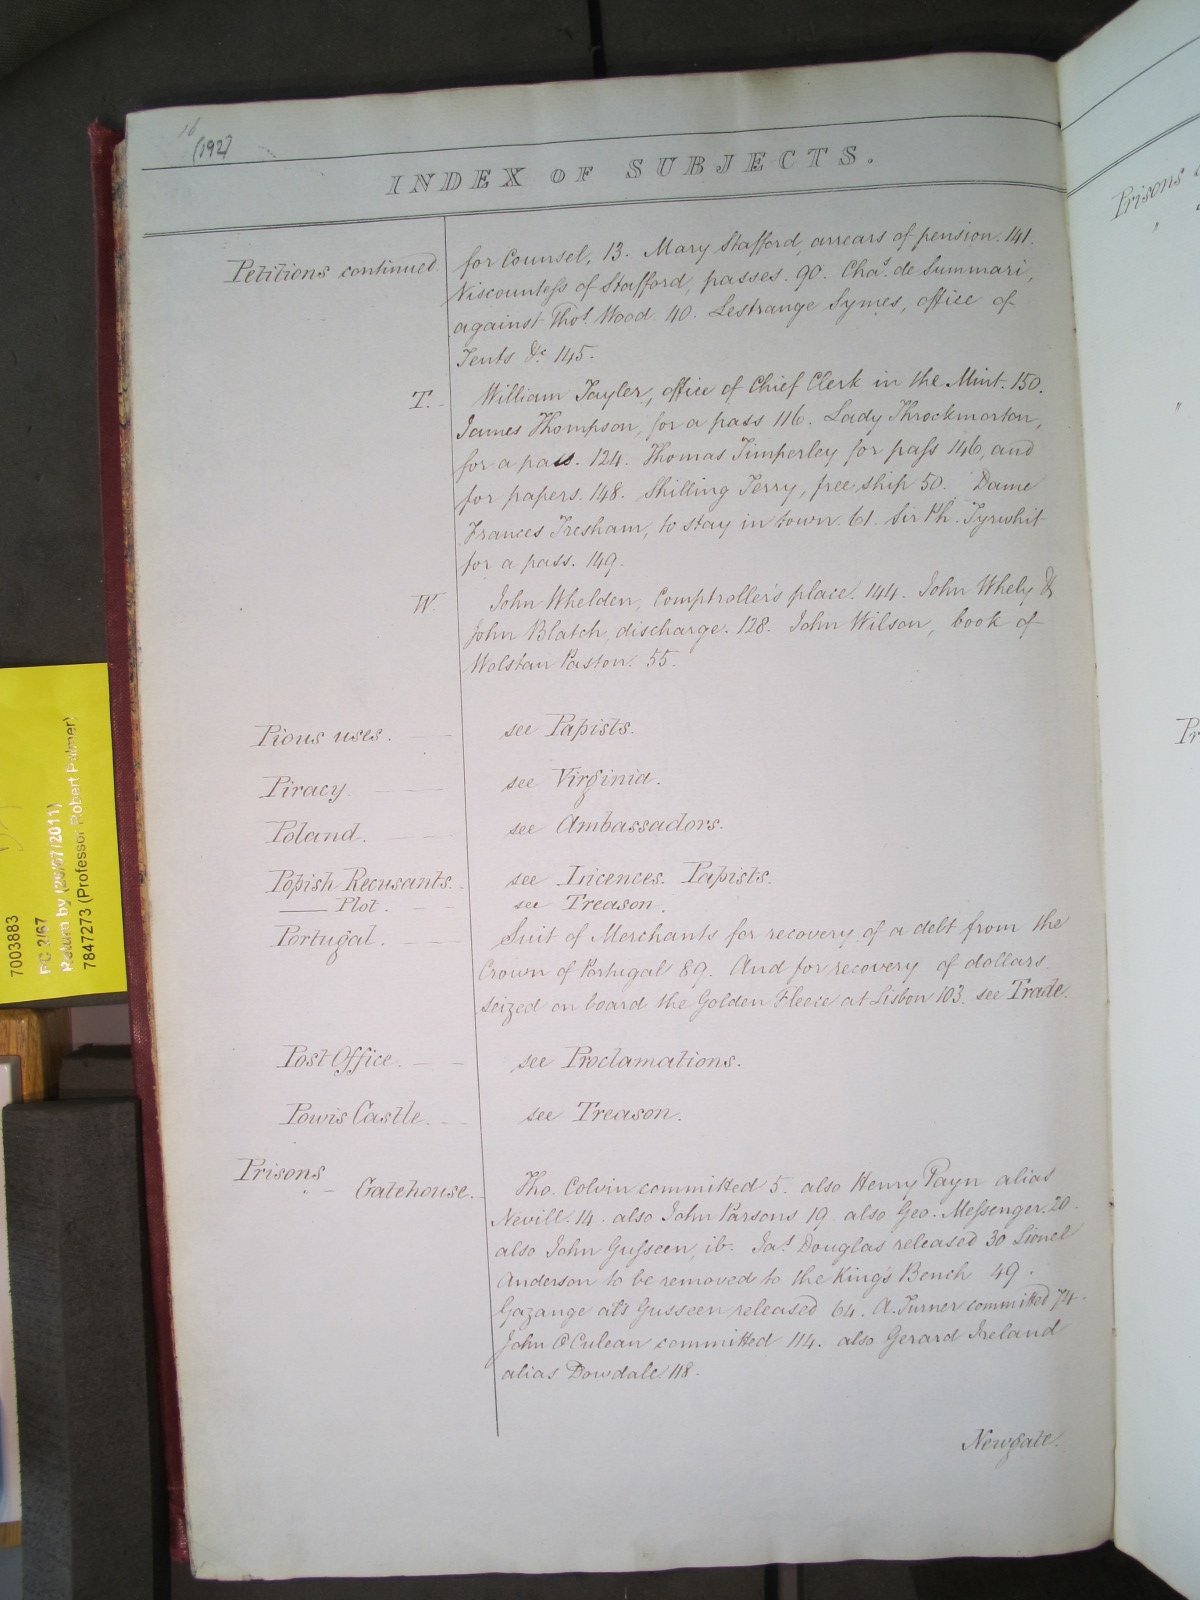 16
(192)
INDEX OF SUBJECTS.
Petitions continued.
for Counsel, 13. Mary Stafford, arrears of pension. 141.
Viscountess of Stafford, passes. 90. Chas. de Summari,
against Thos. Wood. 40. Lestrange Symes, office of
Tents &c 145.
T. William Tayler, office of Chief Clerk in the Mint. 150.
James Thompson, for a pass 116. Lady Throckmorton,
for a pass. 124. Thomas Timperley for pass 146, and
for papers. 148. Shilling Terry, free ship 50. Dame
Frances Tresham, to stay in town. 61. Sir Ph. Tyrwhit
for a pass. 149.
W. John Whelden, Comptroller's place. 144. John Whely &
John Blatch, discharge. 128. John Wilson, book of
Wolstan Paston. 55.
Pious uses. see Papists.
Piracy. see Virginia.
Poland. see Ambassadors.
Popish Recusants. see Licences. Papists.
— Plot. see Treason.
Portugal. Suit of Merchants for recovery of a debt from the
Crown of Portugal 89. And for recovery of dollars
seized on board the Golden Fleece at Lisbon 103. see Trade.
Post Office. see Proclamations.
Powis Castle. see Treason.
Prisons
" Gatehouse. Tho. Colvin committed 5. also Henry Payn alias
Nevill. 14. also John Parsons 19 also Geo. Messenger. 20.
also John Gusseen, ib. Jas. Douglas released 30 Lionel
Anderson to be removed to the King's Bench 49.
Gazange als Gusseen released 64. A. Turner committed 74.
John O Culean committed 114. also Gerard Ireland
alias Dowdale 118.
Newgate.
Prisons
Pr
7003883
PC 2/67
Return by (26/07/2011)
7847273 (Professor Robert Palmer)